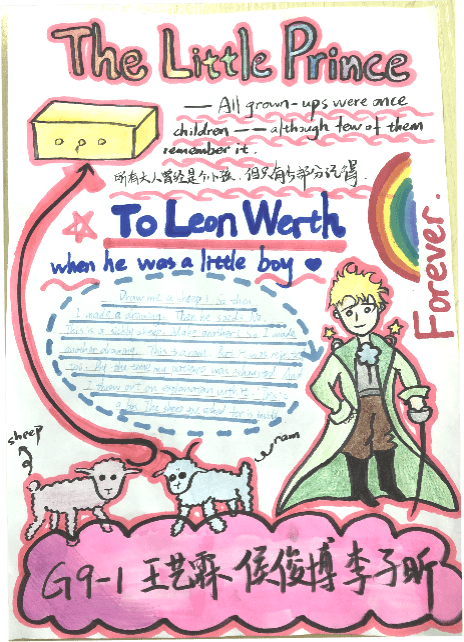 The Little Prince
— All grown-ups were once
children —— although few of them
remember it.
所有大人曾经是个小孩，但只有部分记得.
To Leon Werth
when he was a little boy
Forever.
Draw me a sheep! So then
I made a drawing. Then he said: No.
This is a sickly sheep. Make another! So I made
another drawing. This a ram. But it was
too. By the time my patience was exhausted
I threw out an explanation with it.
box. The sheep you asked for is inside
sheep
ram
G9-1 王艺霖 侯俊博 李子昕